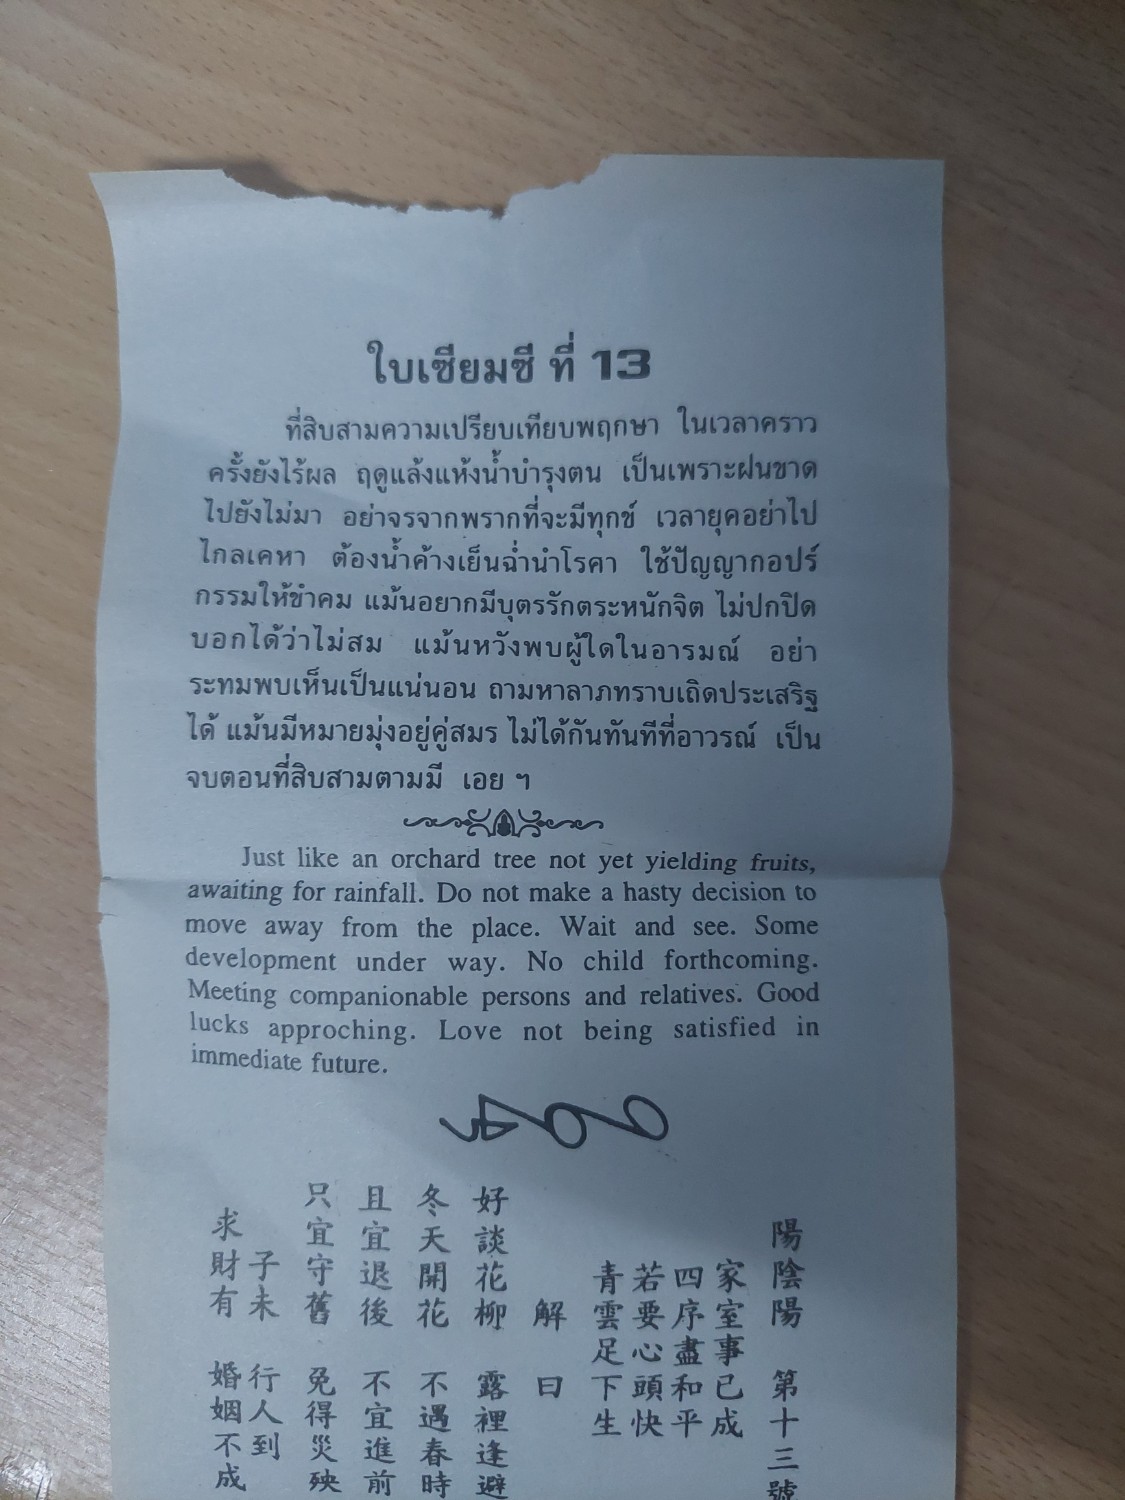 ใบเซียมซี ที่ 13
ที่สิบสามความเปรียบเทียบพฤกษา ในเวลาคราว
ครั้งยังไร้ผล ฤดูแล้งแห้งน้ำบำรุงตน เป็นเพราะฝนขาด
ไปยังไม่มา อย่าจรจากพรากที่จะมีทุกข์ เวลายุคอย่าไป
ไกลเคหา ต้องน้ำค้างเย็นฉ่ำนำโรคา ใช้ปัญญากอปร์
กรรมให้ขำคม แม้นอยากมีบุตรรักตระหนักจิต ไม่ปกปิด
บอกได้ว่าไม่สม แม้นหวังพบผู้ใดในอารมณ์ อย่า
ระทมพบเห็นเป็นแน่นอน ถามหาลาภทราบเถิดประเสริฐ
ได้ แม้นมีหมายมุ่งอยู่คู่สมร ไม่ได้กันทันทีที่อาวรณ์ เป็น
จบตอนที่สิบสามตามมี เอย ฯ
Just like an orchard tree not yet yielding fruits,
awaiting for rainfall. Do not make a hasty decision to
move away from the place. Wait and see. Some
development under way. No child forthcoming.
Meeting companionable persons and relatives. Good
lucks approching. Love not being satisfied in
immediate future.
陽陰陽 第十三號
家室事已成
四序盡和平
若要心頭快
青雲足下生
解曰
好談花柳 露裡逢避
冬天開花 不遇春時
且宜退後 不宜進前
只宜守舊 免得災殃
子未 行人到
求財有 婚姻不成